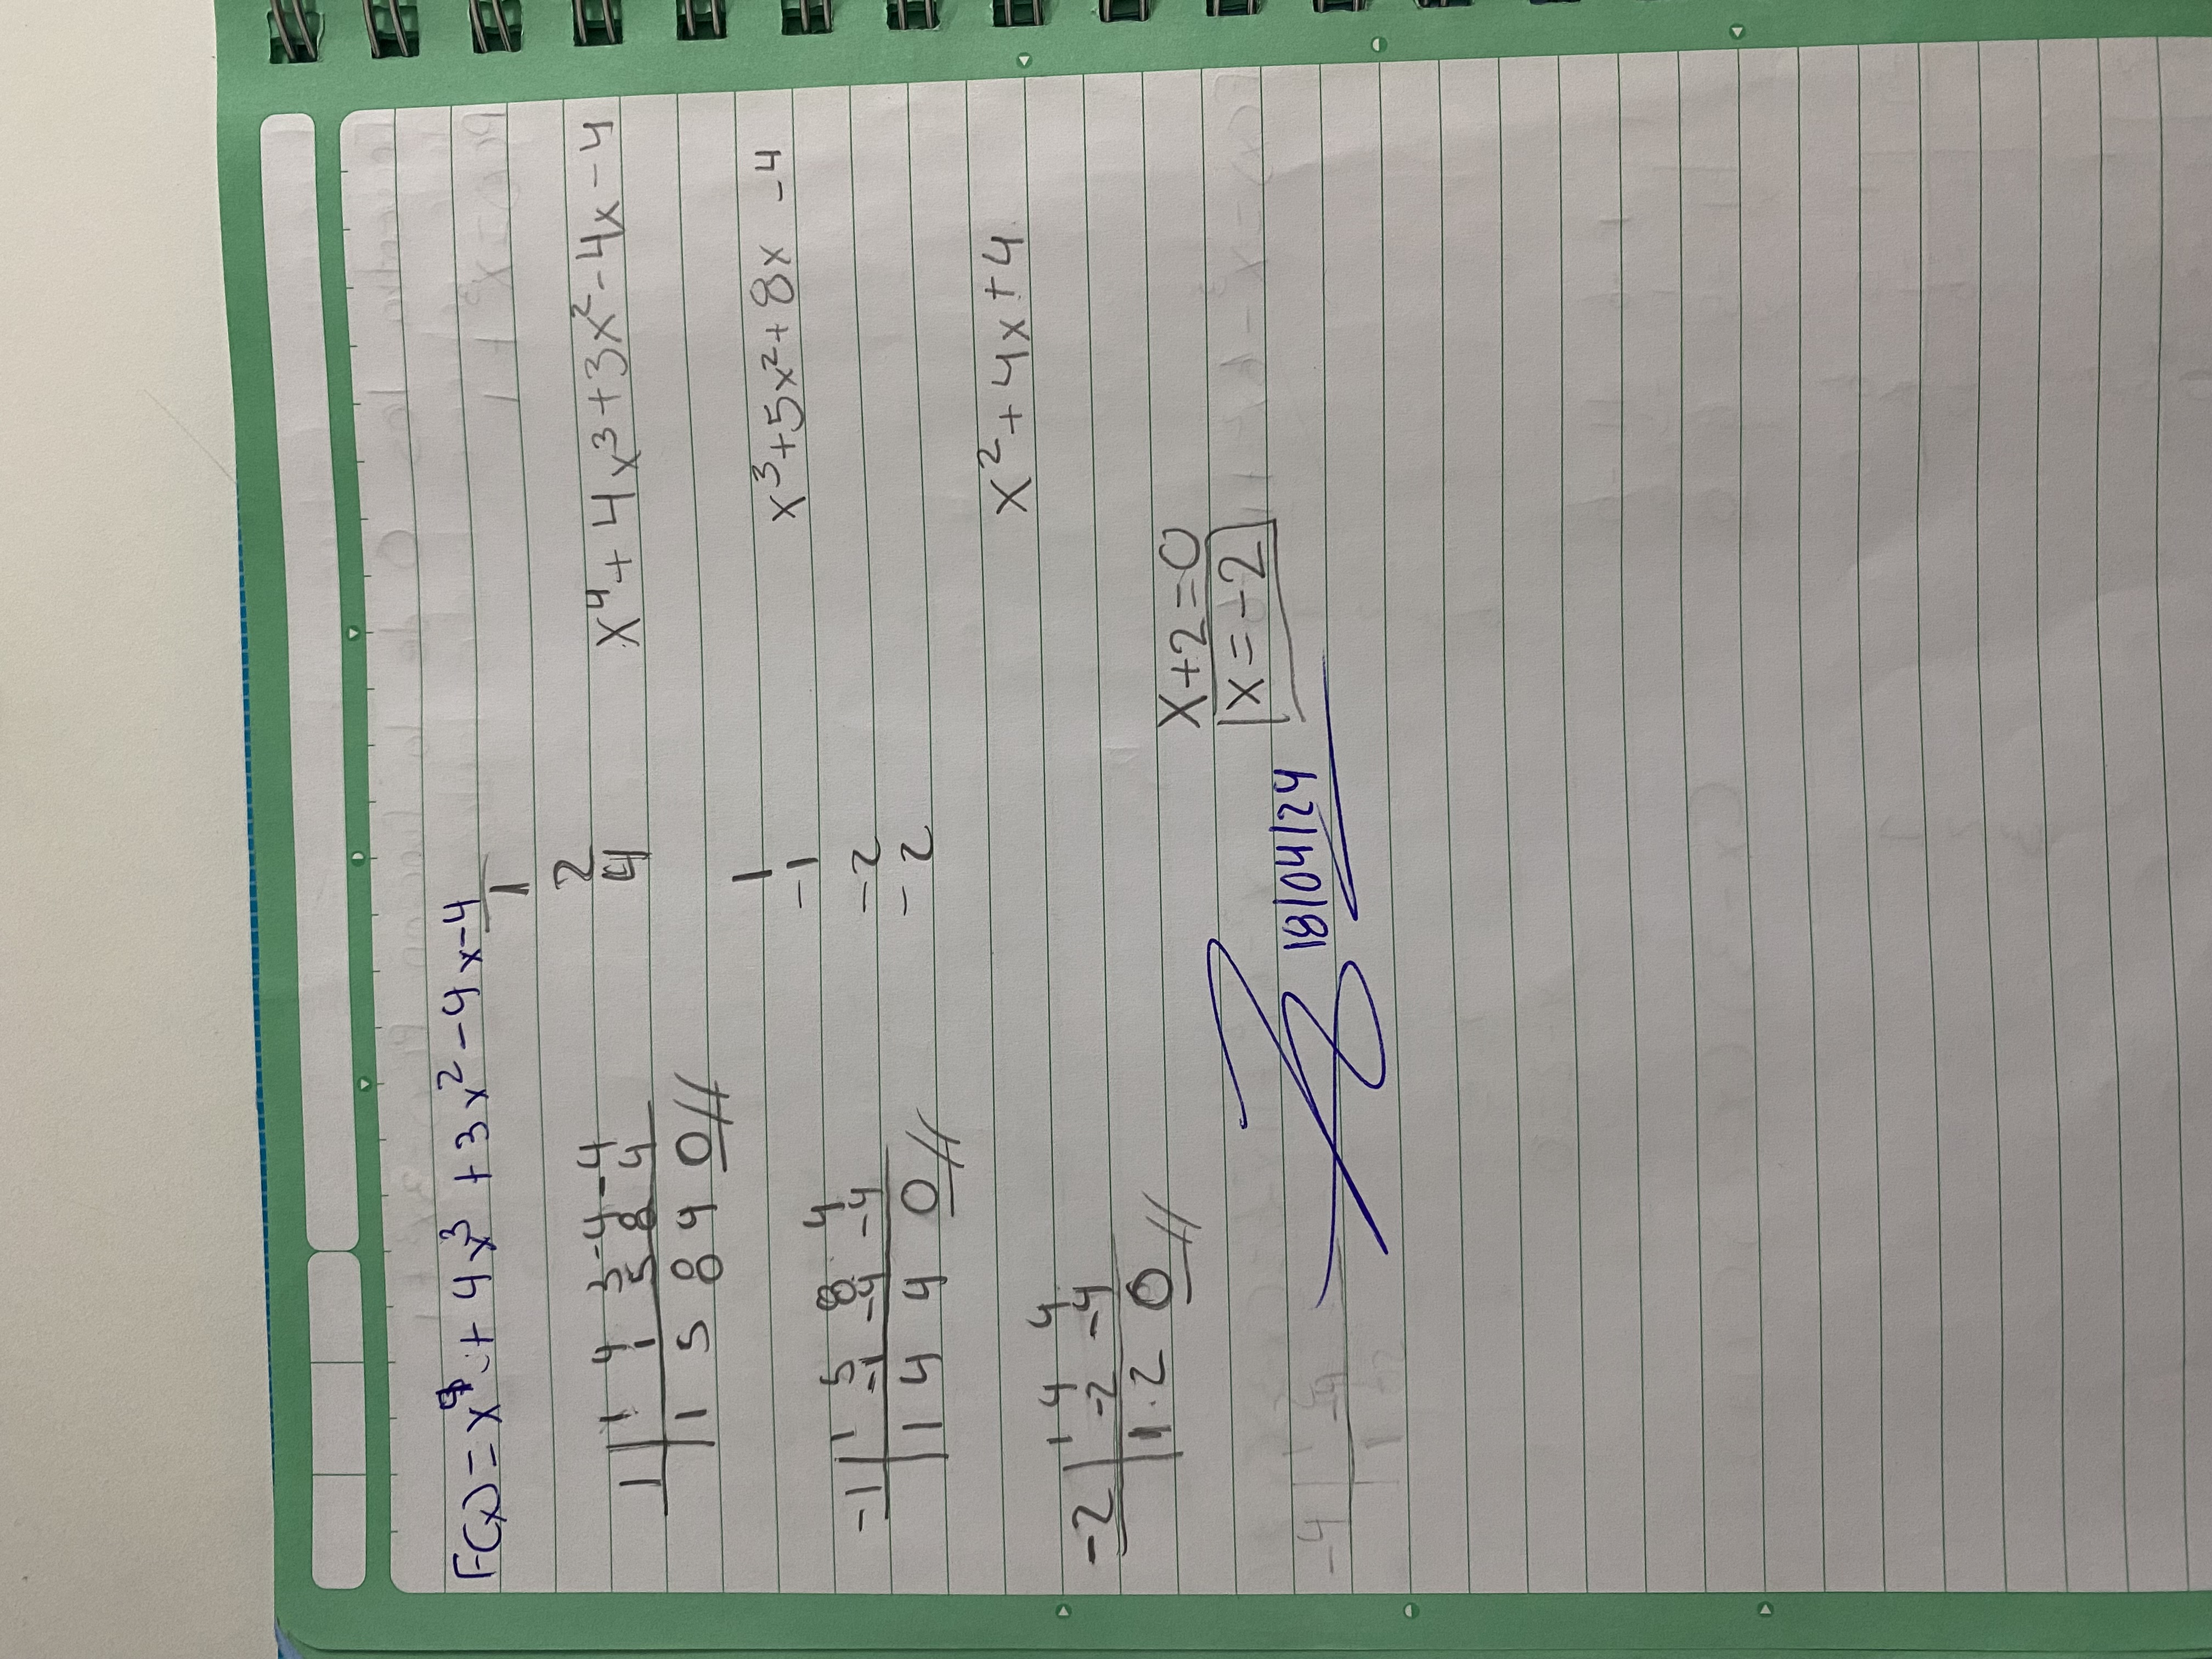 F(x) = x⁴ + 4x³ + 3x² - 4x - 4
1
2
4
1 | 1 4 3 -4 -4
1 5 8 4
1 5 8 4 0//
x⁴ + 4x³ + 3x² - 4x - 4
1
-1
-2
-2
-1 | 1 5 8 4
-1 -4 -4
1 4 4 0//
x³ + 5x² + 8x - 4
-2 | 1 4 4
-2 -4
1 2 0//
x² + 4x + 4
x + 2 = 0
x = -2
18/04/24